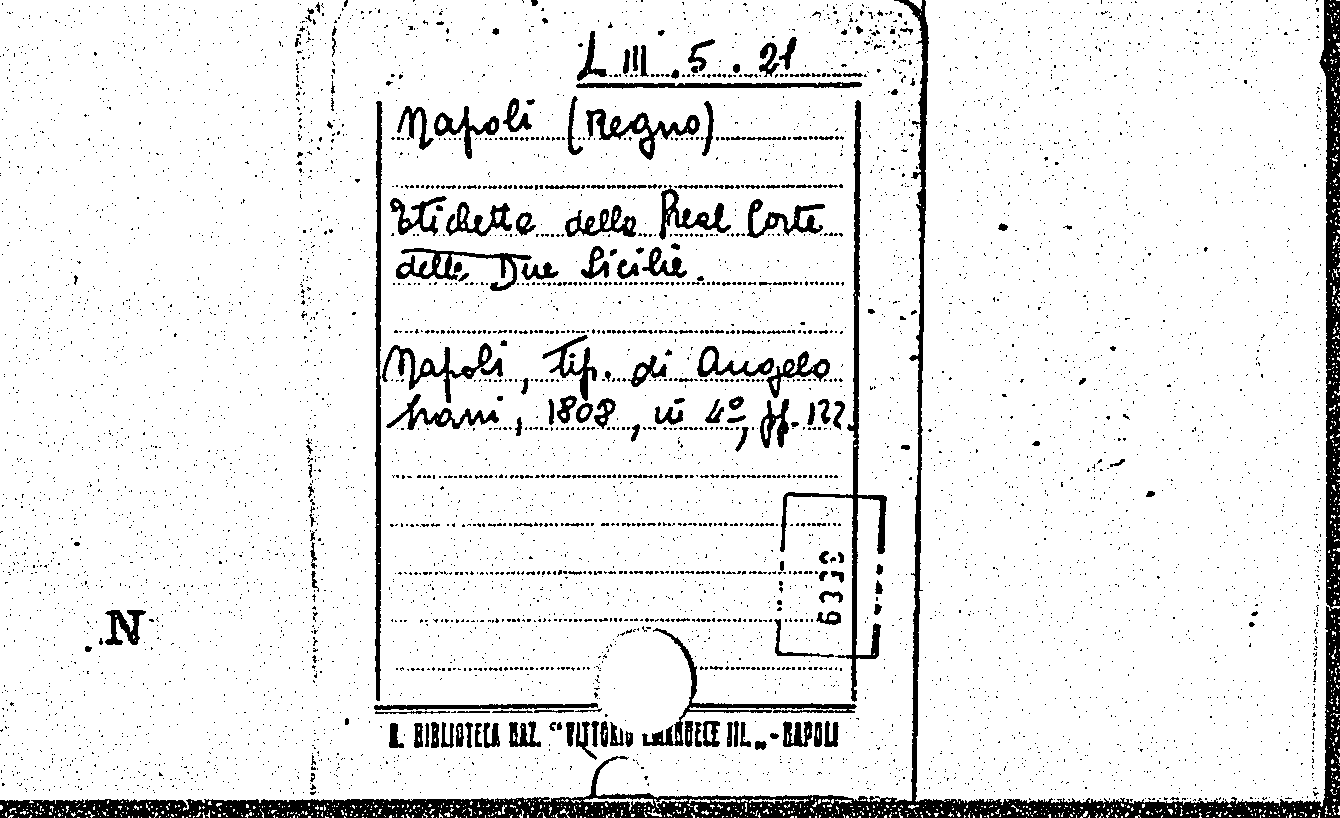 L III . 5 . 21
Napoli (Regno)
Etichetta della Real Corte
delle Due Sicilie.
Napoli, Tip. di Angelo
Trani, 1808, in 4º, pp. 122.
6333
N
R. BIBLIOTECA NAZ. "VITTORIO EMANUELE III." - NAPOLI